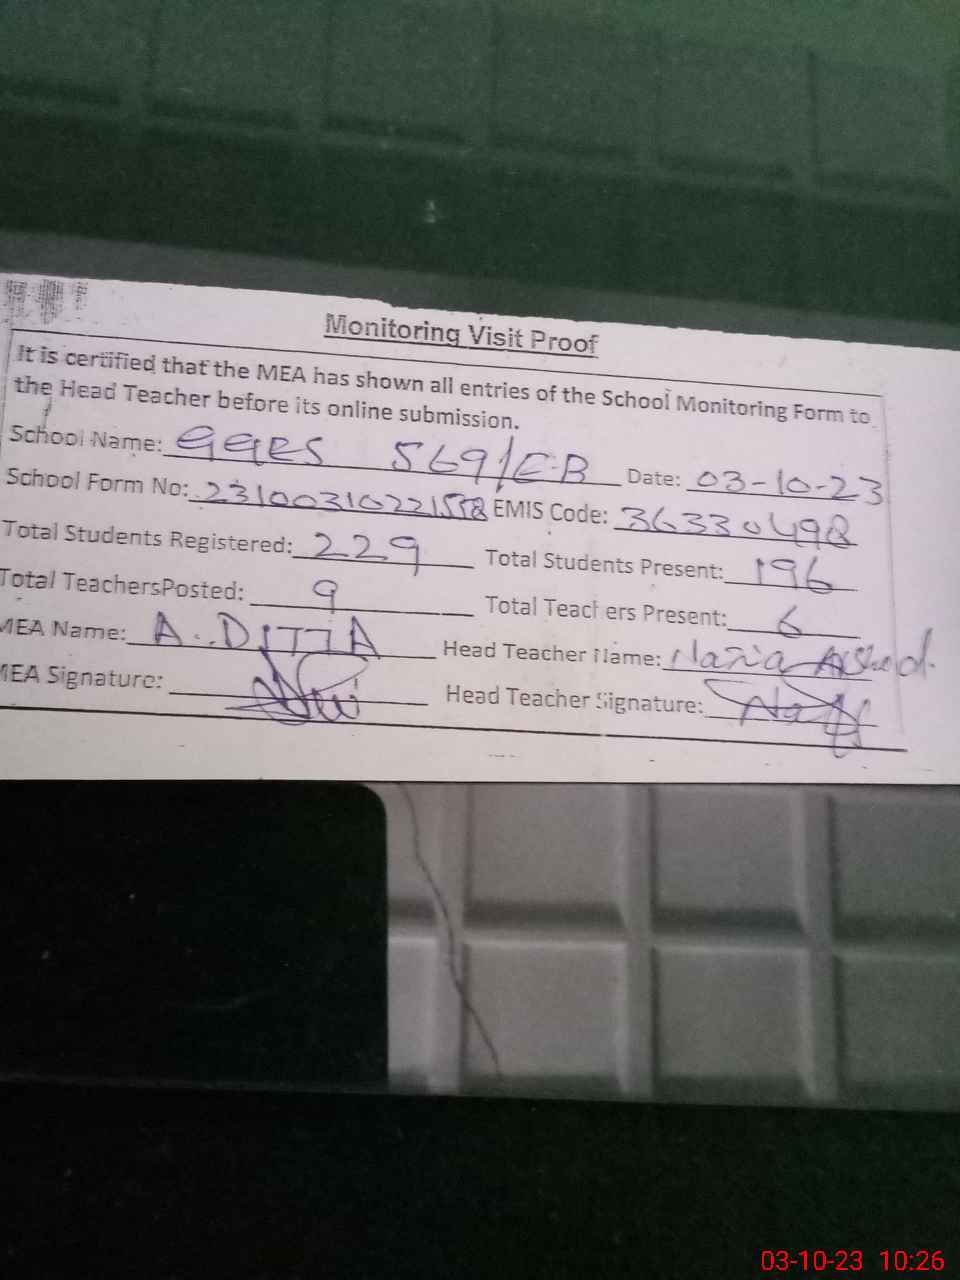 Monitoring Visit Proof
It is certified that the MEA has shown all entries of the School Monitoring Form to
the Head Teacher before its online submission.
School Name: GGES 569/E-B Date: 03-10-23
School Form No: 231003102215 EMIS Code: 36330498
Total Students Registered: 229 Total Students Present: 196
Total TeachersPosted: 9 Total Teachers Present: 6
MEA Name: A. DITTA Head Teacher Name: Nazia Arshad
MEA Signature: Head Teacher Signature:
03-10-23 10:26